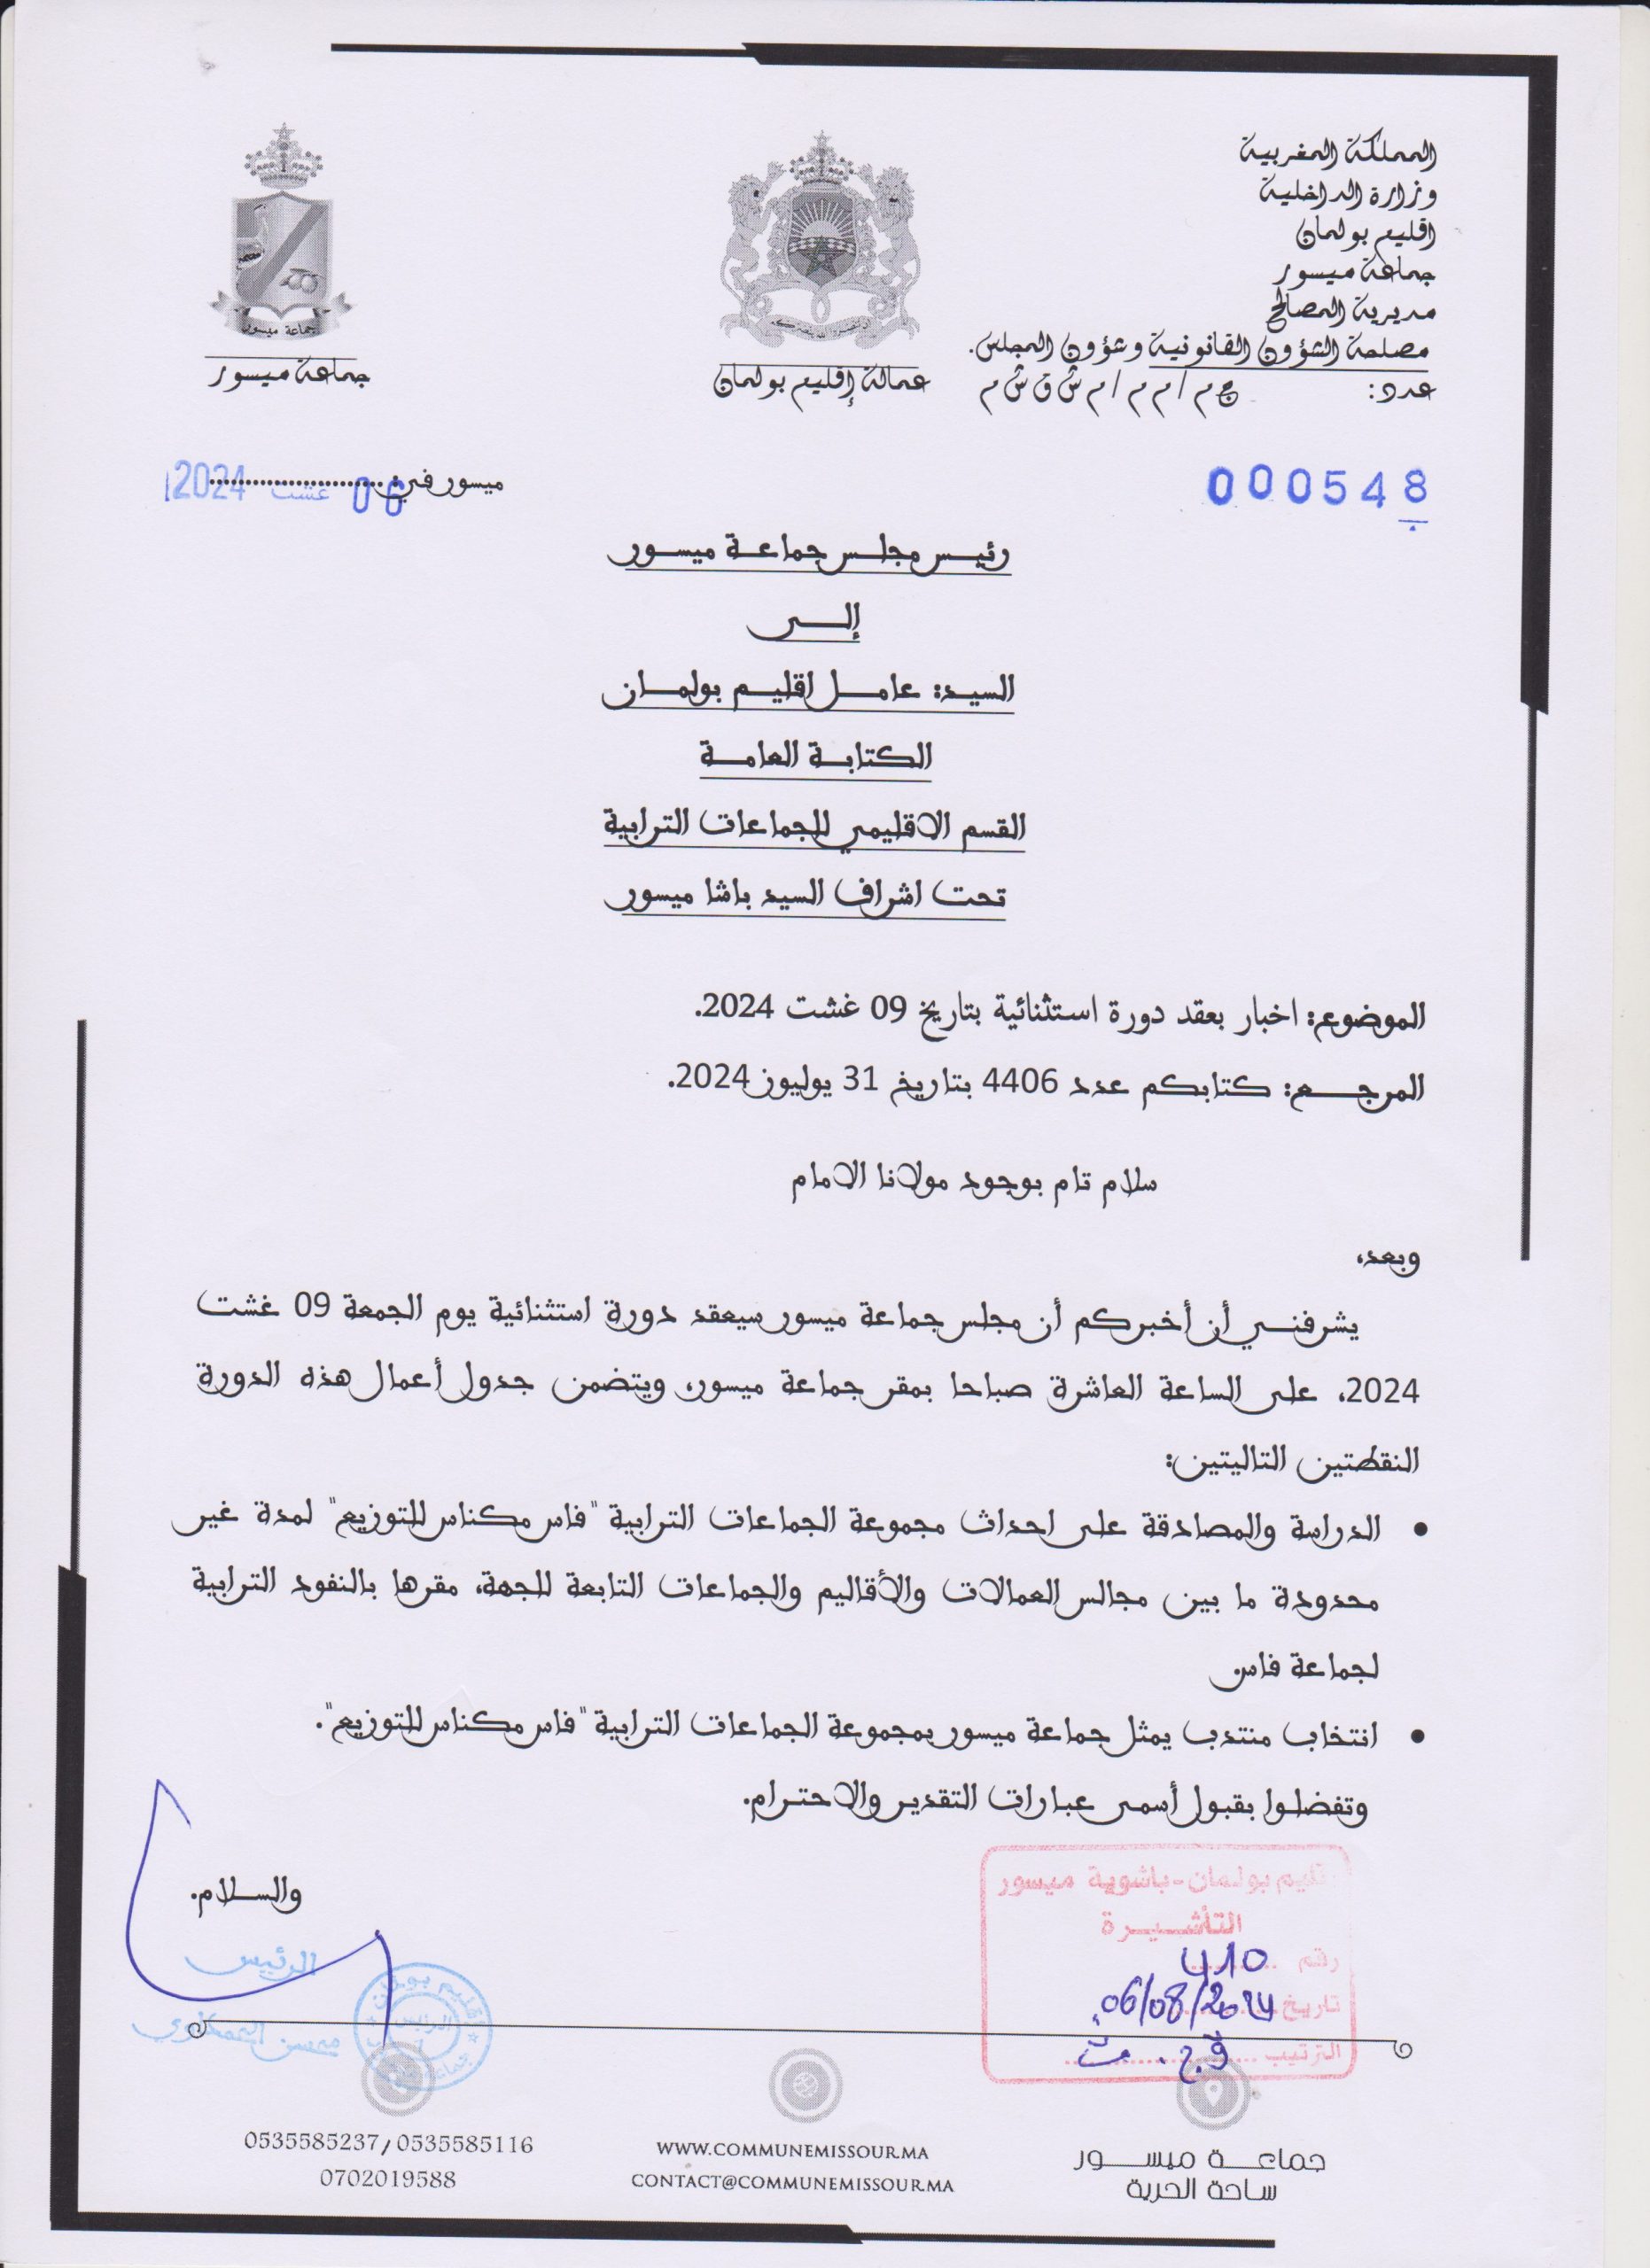 المملكة المغربية
وزارة الداخلية
اقليم بولمان
جماعة ميسور
مديرية المصالح
مصلحة الشؤون القانونية وشؤون المجلس.
عدد: ج م / م م / م ش ق ش م
عمالة إقليم بولمان
جماعة ميسور
جماعة ميسور
000548
ميسور في 06 غشت 2024
رئيس مجلس جماعة ميسور
إلى
السيد: عامل اقليم بولمان
الكتابة العامة
القسم الاقليمي للجماعات الترابية
تحت اشراف السيد باشا ميسور
الموضوع: اخبار بعقد دورة استثنائية بتاريخ 09 غشت 2024.
المرجع: كتابكم عدد 4406 بتاريخ 31 يوليوز 2024.
سلام تام بوجود مولانا الامام
وبعد،
يشرفني أن أخبركم أن مجلس جماعة ميسور سيعقد دورة استثنائية يوم الجمعة 09 غشت
2024، على الساعة العاشرة صباحا بمقر جماعة ميسور، ويتضمن جدول أعمال هذه الدورة
النقطتين التاليتين:
• الدراسة والمصادقة على احداث مجموعة الجماعات الترابية "فاس مكناس للتوزيع" لمدة غير
محدودة ما بين مجالس العمالات والأقاليم والجماعات التابعة للجهة، مقرها بالنفود الترابية
لجماعة فاس
• انتخاب منتدب يمثل جماعة ميسور بمجموعة الجماعات الترابية "فاس مكناس للتوزيع".
وتفضلوا بقبول أسمى عبارات التقدير والاحترام.
والسلام.
الرئيس
قليم بولمان-باشوية ميسور
التأشيرة
رقم 410
تاريخ 06/08/2024
الترتيب
جماعة ميسور
ساحة الحرية
WWW.COMMUNEMISSOUR.MA
CONTACT@COMMUNEMISSOUR.MA
0535585237/0535585116
0702019588